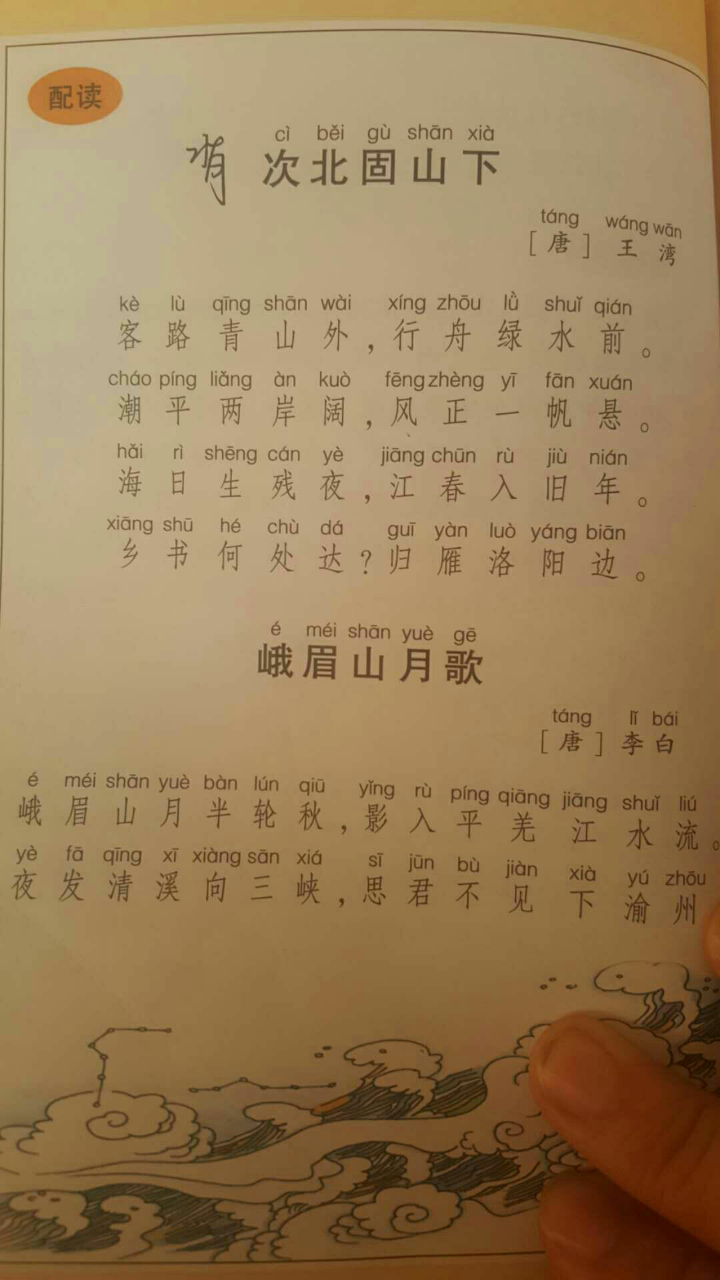 配读
cì běi gù shān xià
背 次北固山下
táng wáng wān
[唐] 王湾
kè lù qīng shān wài xíng zhōu lǜ shuǐ qián
客路青山外，行舟绿水前。
cháo píng liǎng àn kuò fēng zhèng yī fān xuán
潮平两岸阔，风正一帆悬。
hǎi rì shēng cán yè jiāng chūn rù jiù nián
海日生残夜，江春入旧年。
xiāng shū hé chù dá guī yàn luò yáng biān
乡书何处达？归雁洛阳边。
é méi shān yuè gē
峨眉山月歌
táng lǐ bái
[唐] 李白
é méi shān yuè bàn lún qiū yǐng rù píng qiāng jiāng shuǐ liú
峨眉山月半轮秋，影入平羌江水流。
yè fā qīng xī xiàng sān xiá sī jūn bù jiàn xià yú zhōu
夜发清溪向三峡，思君不见下渝州